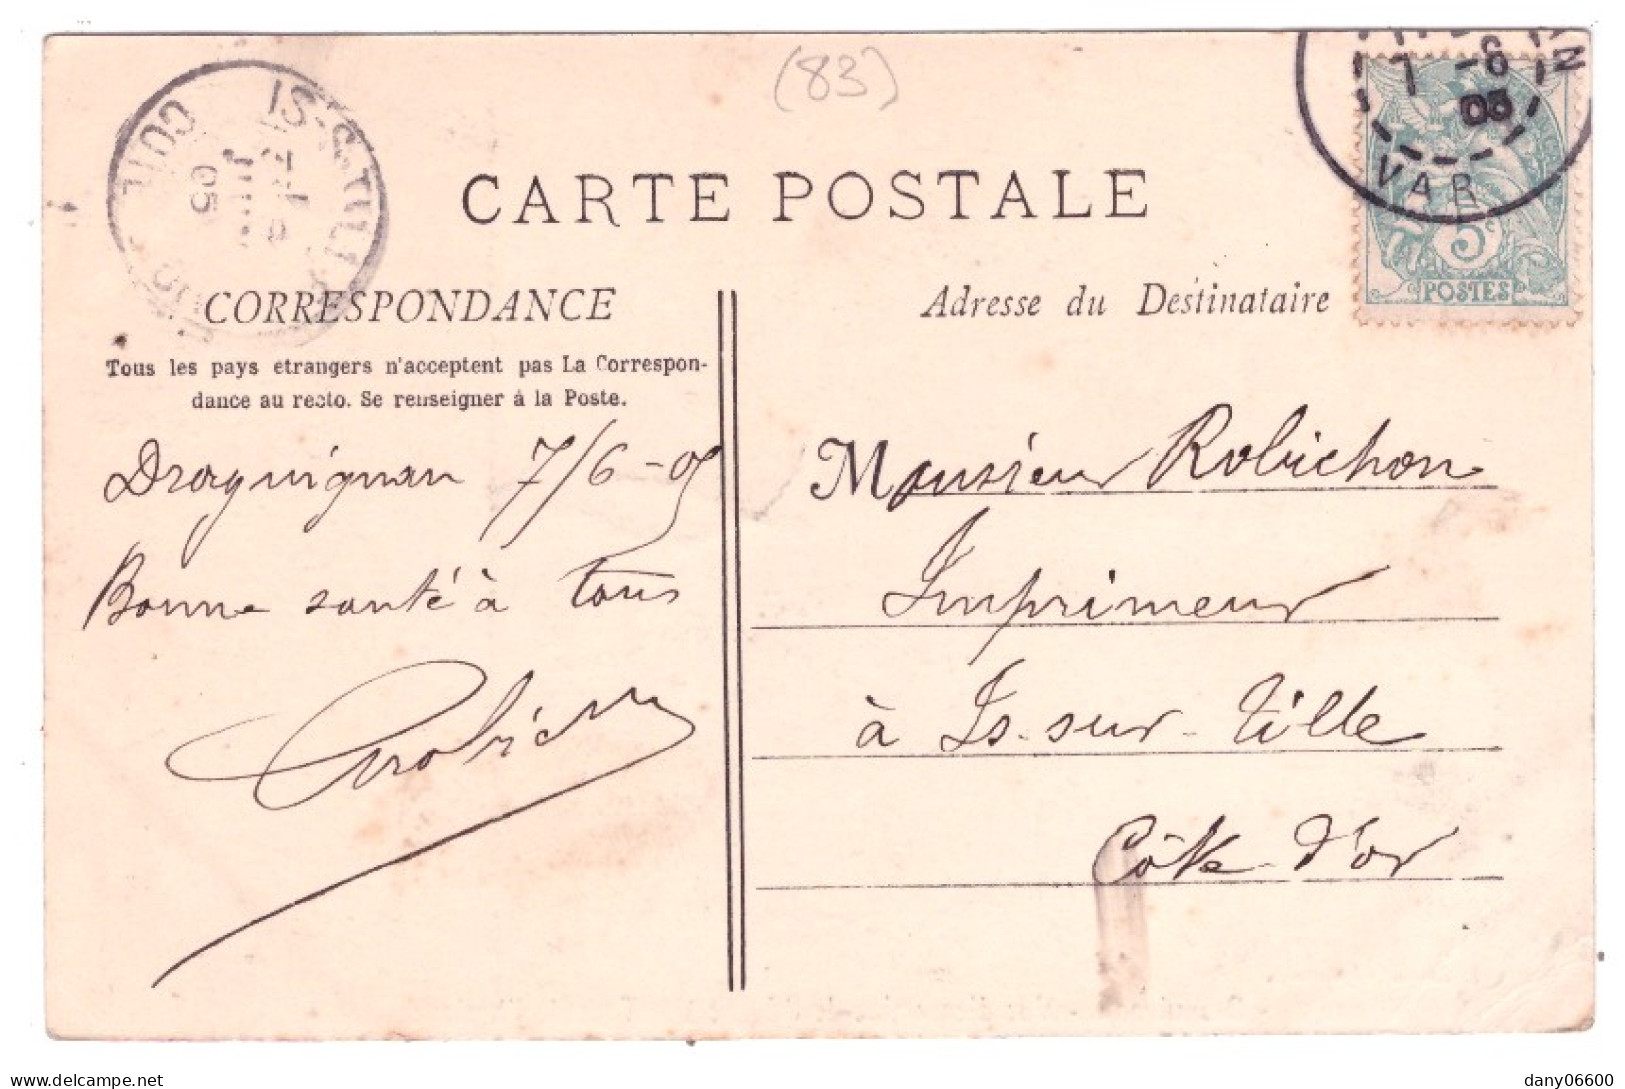 (83)
IS-S-TILLE
COTE
05
-6
05
VAR
5c
POSTES
CARTE POSTALE
CORRESPONDANCE
Tous les pays étrangers n'acceptent pas La Correspon-
dance au recto. Se renseigner à la Poste.
Draguignan 7/6-05
Bonne santé à tous
Adresse du Destinataire
Monsieur Robichon
Imprimeur
à Is-sur-Tille
Côte-d'or
delcampe.net
dany06600